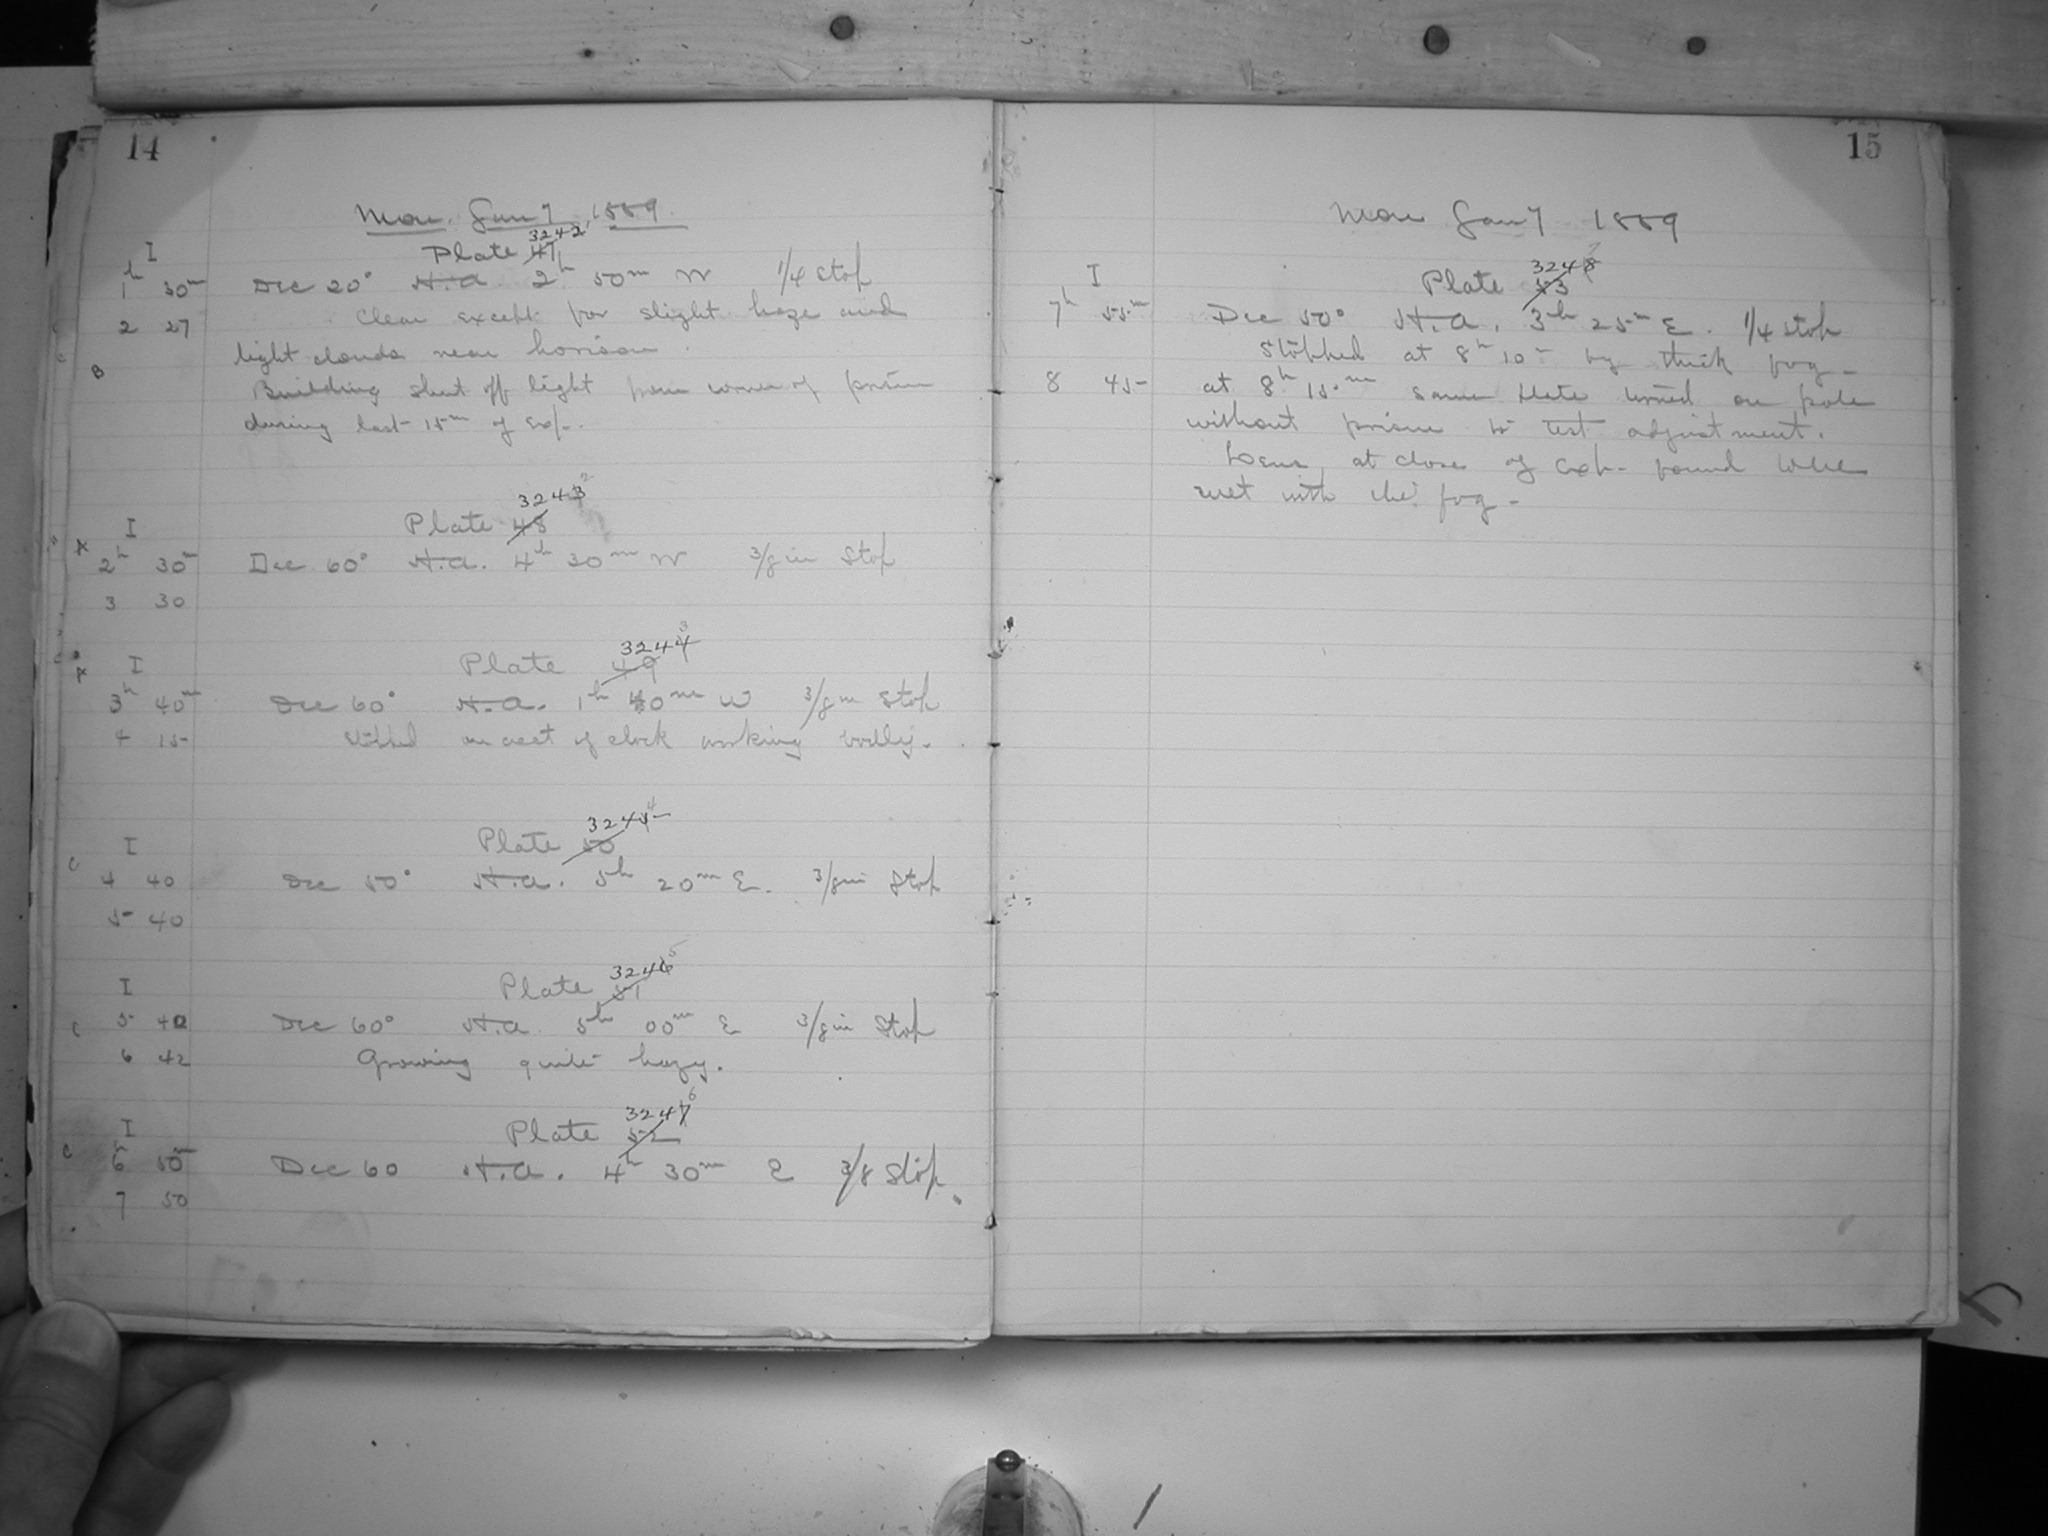 14
Mon. Jan 7, 1889.
3242
I Plate 47
1h 30m Dec 20° H.A. 2h 50m W 1/4 stop
2 27 Clear except for slight haze and
light clouds near horison.
B Building shut off light from corner of prism
during last 15m of exp.
3243 2
I Plate 48
2h 30m Dec 60° H.A. 4h 30m W 3/8 in Stop
3 30
3244 3
I Plate 49
3h 40m Dec 60° H.A. 1h 40m W 3/8 in Stop
4 15 Stopped on acct of clock working badly.
3245 4
I Plate 50
c 4 40 Dec 50° H.A. 5h 20m E. 3/8 in Stop
5 40
3246 5
I Plate 51
c 5 42 Dec 60° H.A. 5h 00m E 3/8 in Stop
6 42 Growing quite hazy.
3247 6
I Plate 52
c 6h 50m Dec 60 H.A. 4h 30m E 3/8 Stop.
7 50
15
Mon Jan 7 1889
3248 7
I Plate 53
7h 55m Dec 50° H.A. 3h 25m E. 1/4 stop
Stopped at 8h 10m by thick fog-
8 45 at 8h 15m same plate turned on pole
without prism to test adjustment.
Lens at close of exp. found were
wet with the fog-